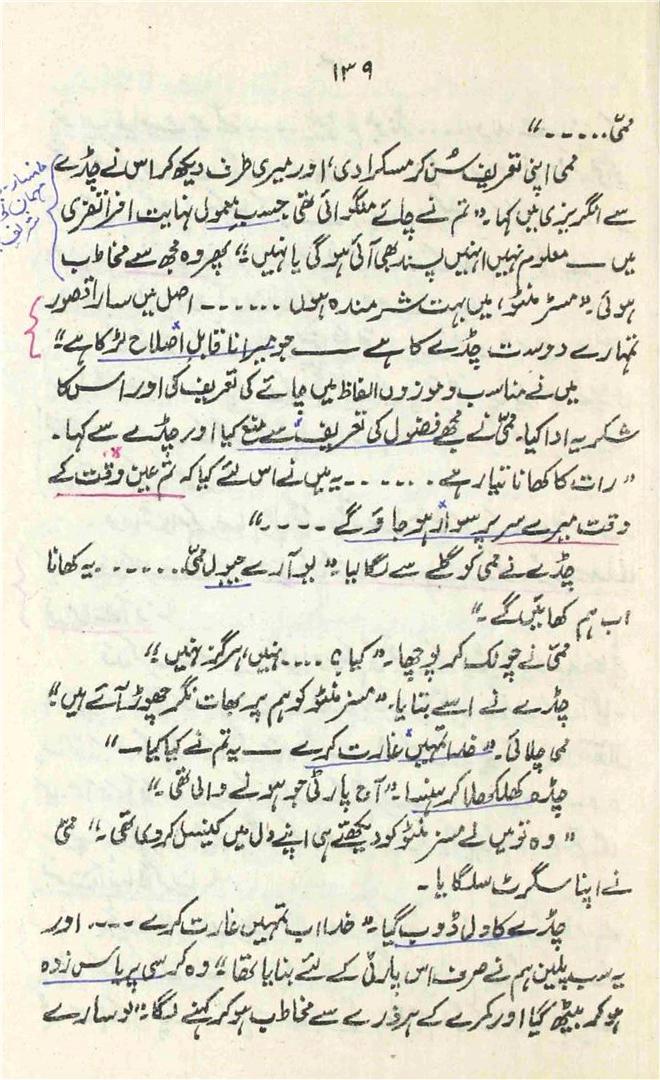 ۱۳۹
ممّی.....“
ممی اپنی تعریف سُن کر مسکرا دی، اور میری طرف دیکھ کر اس نے چڈے
سے انگریزی میں کہا۔ ”تم نے چائے منگوائی تھی حسبِ معمول نہایت افراتفری
میں ــــ معلوم نہیں انہیں پسند بھی آئی ہوگی یا نہیں؟“ پھر وہ مجھ سے مخاطب
ہوئی ”مسٹر منٹو، میں بہت شرمندہ ہوں ...... اصل میں سارا قصور
تمہارے دوست چڈے کا ہے ــــ جو میرا ناقابلِ اصلاح لڑکا ہے“
میں نے مناسب و موزوں الفاظ میں چائے کی تعریف کی اور اس کا
شکریہ ادا کیا۔ ممّی نے مجھے فضول کی تعریف سے منع کیا اور چڈے سے کہا۔
”رات کا کھانا تیار ہے ...... یہ میں نے اس لئے کیا کہ تم عین وقت کے
وقت میرے سر پر سوار ہو جاؤ گے ....“
چڈے نے ممی کو گلے سے لگا لیا۔ ”یو آر اے جیول ممّی ...... یہ کھانا
اب ہم کھائیں گے۔“
ممّی نے چونک کر پوچھا۔ ”کیا؟ .... نہیں، ہرگز نہیں!“
چڈے نے اسے بتایا۔ ”مسز منٹو کو ہم پربھات نگر چھوڑ آئے ہیں“
ممی چلائی۔ ”خدا تمہیں غارت کرے ــــ یہ تم نے کیا کیا۔“
چڈہ کھلکھلا کر ہنسا۔ ”آج پارٹی جو ہونے والی تھی۔“
”وہ تو میں نے مسز منٹو کو دیکھتے ہی اپنے دل میں کینسل کر دی تھی۔“ ممّی
نے اپنا سگرٹ سلگایا۔
چڈے کا دل ڈوب گیا۔ ”خدا اب تمہیں غارت کرے .... اور
یہ سب پلین ہم نے صرف اس پارٹی کے لئے بنایا تھا“ وہ کرسی پر یاس زدہ
ہو کر بیٹھ گیا اور کمرے کے ہر ذرے سے مخاطب ہو کر کہنے لگا۔ ”لو سارے
ملنسار
مہمان